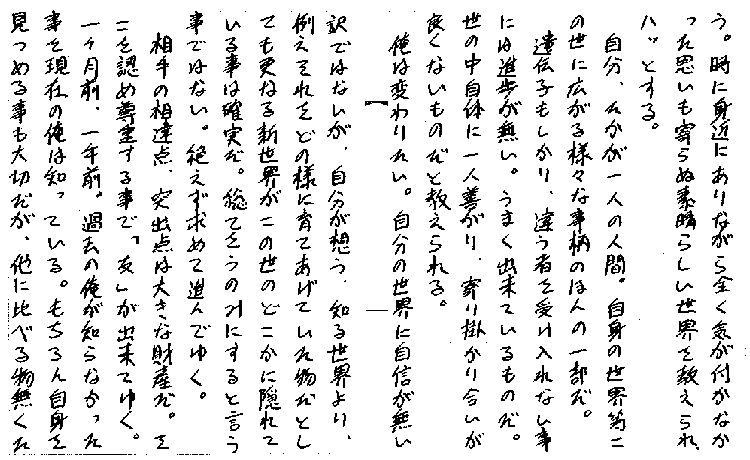 う。時に身近にありながら全く気が付かなか
った思いも寄らぬ素晴らしい世界を教えられ、
ハッとする。
自分、たかが一人の人間。自身の世界等こ
の世に広がる様々な事柄のほんの一部だ。
遺伝子もしかり、違う者を受け入れない事
には進歩が無い。うまく出来ているものだ。
世の中自体に一人善がり、寄り掛かり合いが
良くないものだと教えられる。
俺は変わりたい。自分の世界に自信が無い
訳ではないが、自分が想う、知る世界より、
例えそれをどの様に育てあげていた物だとし
ても更なる新世界がこの世のどこかに隠れて
いる事は確実だ。総てをうのみにすると言う
事ではない。絶えず求めて進んでゆく。
相手の相違点、突出点は大きな財産だ。そ
こを認め尊重する事で「友」が出来てゆく。
一ヶ月前、一年前。過去の俺が知らなかった
事を現在の俺は知っている。もちろん自身を
見つめる事も大切だが、他に比べる物無くた